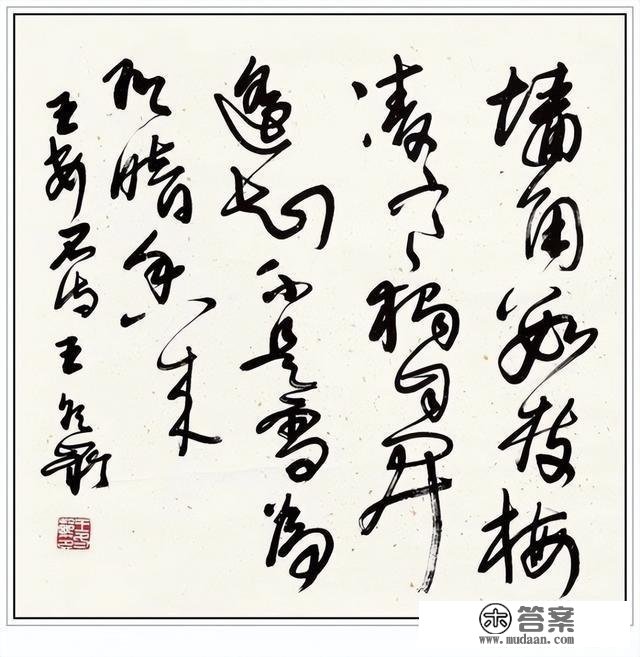 墙角數枝梅
凌寒獨自開
遥知不是雪為
有暗香来
王安石诗王冬齡
答案
www.mudaan.com